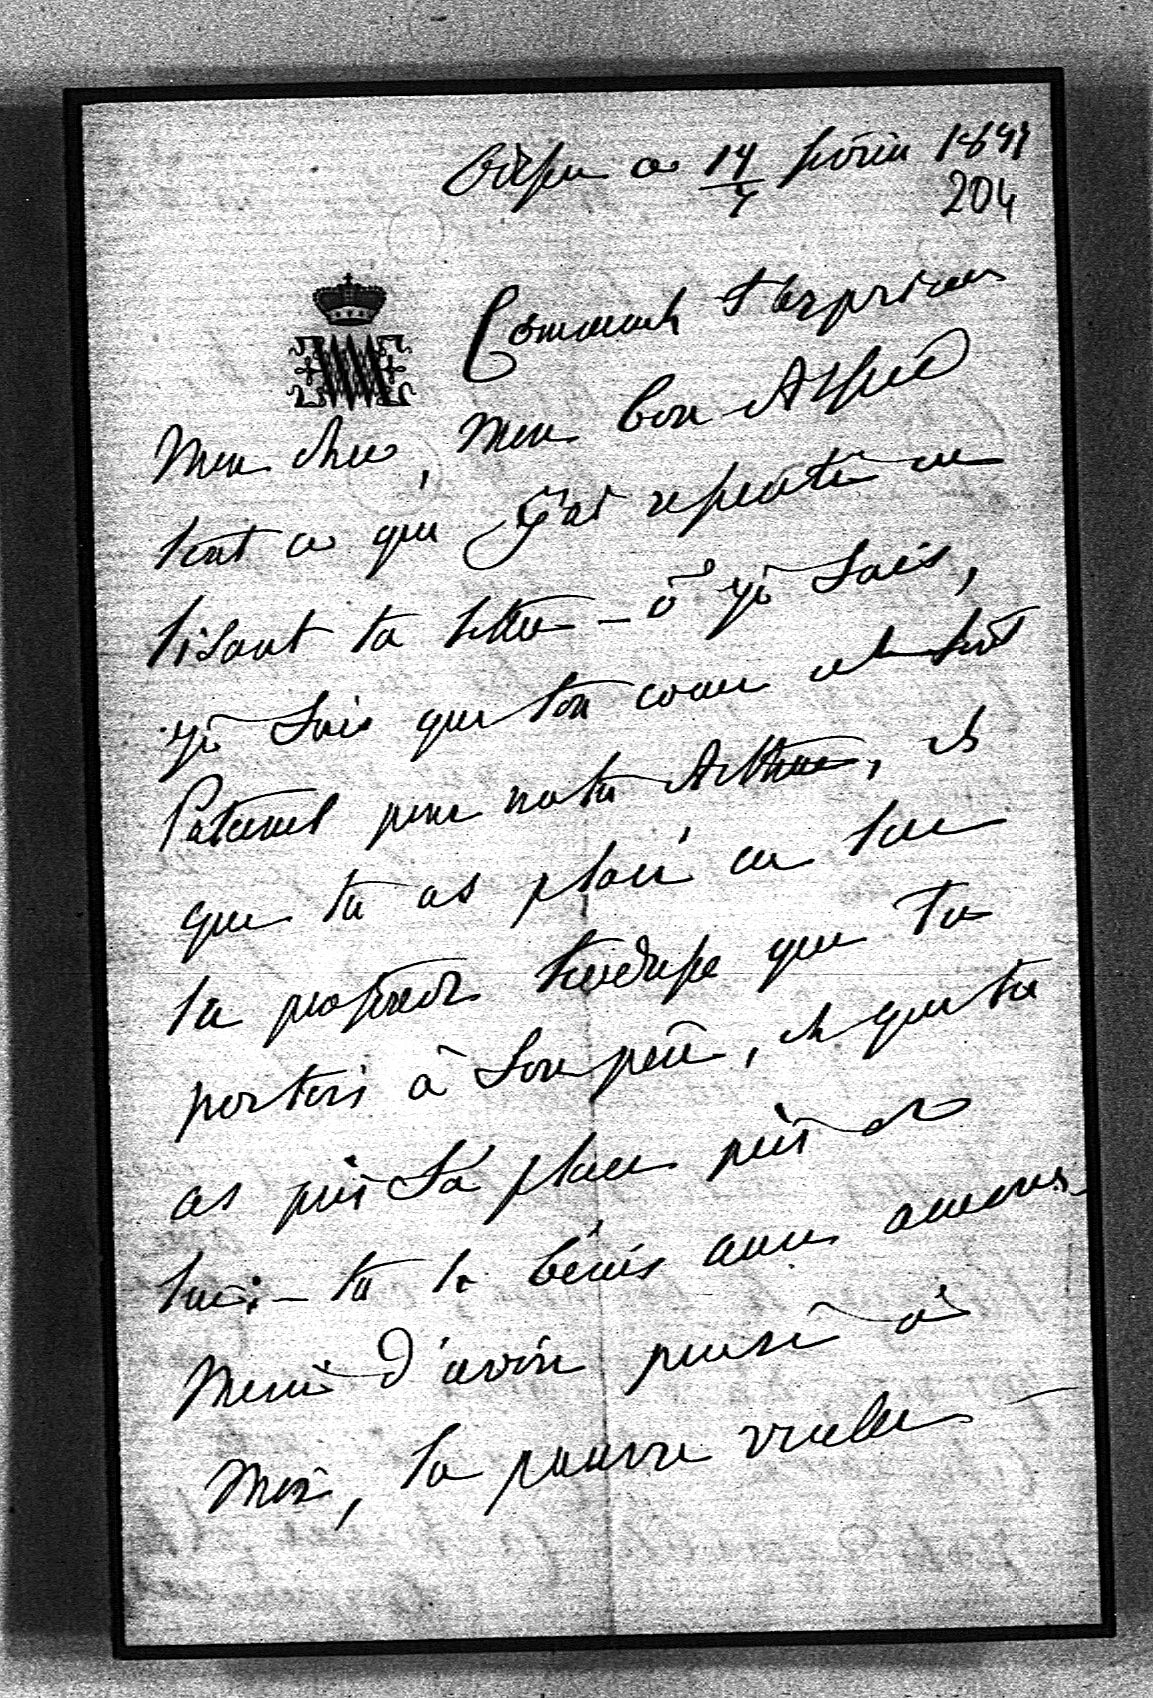 ce 14 février 1899
204
Comment t'exprimer
Mon cher, Mon bon Alfred
tout ce que j'ai ressenti en
lisant ta lettre – ô je sais,
je sais que ton coeur est
Paternel pour notre Arthur, et
que tu as placé en lui
la profonde tendresse que tu
portais à Son père, et que tu
as pris Sa place près de
lui. – tu le bénis avec amour.
Merci d'avoir pensé à
Moi, la pauvre vieille –